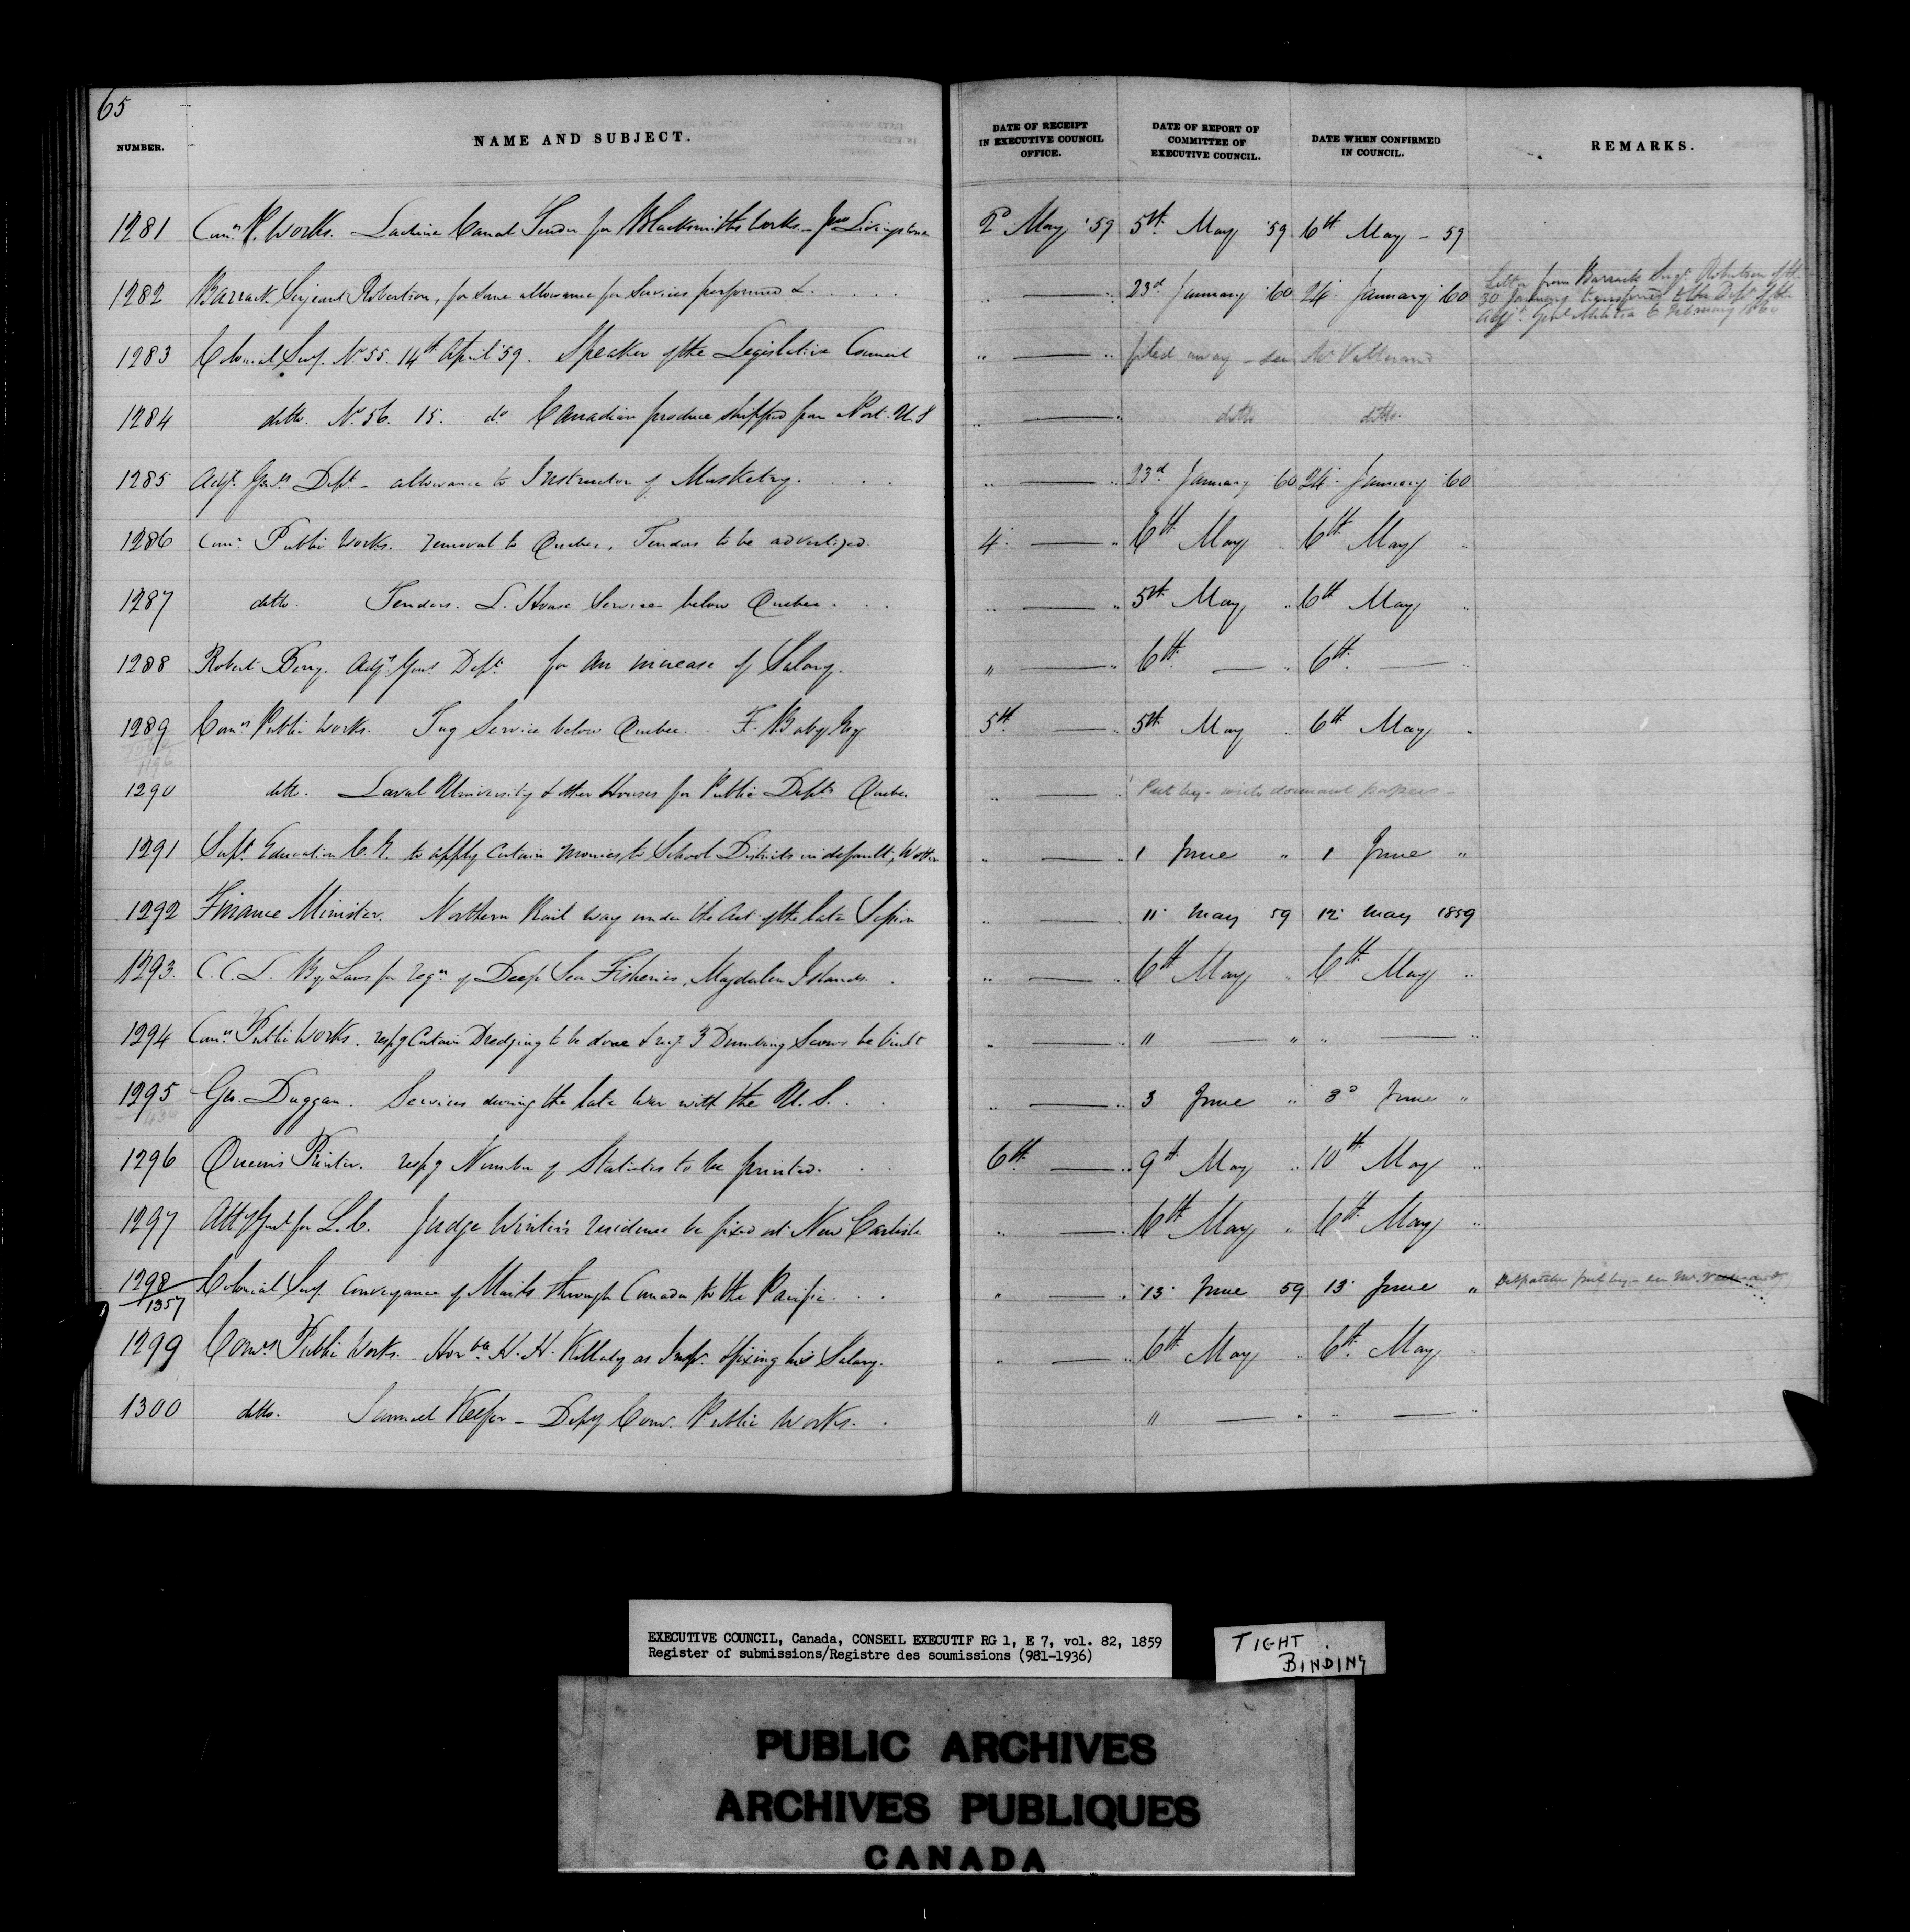 65
NUMBER. NAME AND SUBJECT. DATE OF RECEIPT IN EXECUTIVE COUNCIL OFFICE. DATE OF REPORT OF COMMITTEE OF EXECUTIVE COUNCIL. DATE WHEN CONFIRMED IN COUNCIL. REMARKS.
1281 Comrs P. Works. Lachine Canal Tender for Blacksmiths Works - Jno Livingstone 2d May '59 5th May '59 6th May - 59
1282 Barrack Serjeant Robertson, for some allowance for Services performed &. .. — .. 23d January '60 24. January '60 Letter from Barrack Sergt Robertson of the
30 January transferred to the Dept of the
Adjt Genl Militia 6 February 1860
1283 Colonial Secy. No 55. 14th April '59. Speaker of the Legislative Council .. — .. filed away - see Mr
1284 ditto. No 56. 15. do Canadian produce shipped from Port. U.S .. — .. ditto ditto.
1285 Adjt Genls Dept - allowance to Instructor of Musketry. .. — .. 23d January 60 24. January '60
1286 Comrs Public Works. removal to Quebec. Tenders to be advertized. 4. — .. 6th May .. 6th May ..
1287 ditto. Tenders. L. House Service below Quebec. .. — .. 5th May .. 6th May ..
1288 Robert Berry. Adjt Genl Dept for an increase of Salary. " — .. 6th — .. 6th — ..
1289 Comrs Public Works. Tug Service below Quebec. F. Baby Esq 5th — .. 5th May .. 6th May ..
1290 ditto. Laval University & other Houses for Public Depts Quebec .. — .. Put by - with dormant papers -
1291 Supt Education C.E. to apply Certain monies to School Districts in default, .. — .. 1 June " 1 June "
1292 Finance Minister. Northern Rail way under the Act of the late Session .. — .. 11. May 59 12. May 1859
1293. C.C.L. By Laws for regn of Deep Sea Fisheries, Magdalen Islands. .. — .. 6th May .. 6th May ..
1294 Comrs Public Works. respg Certain Dredging to be done & 3 Dumbing Scows be built .. — .. " — " .. — ..
1295 Geo. Duggan. Services during the late War with the U.S. .. — .. 3 June " 3d June "
1296 Queen's Printer. respg Number of Statutes to be printed. 6th — .. 9th May .. 10th May ..
1297 Atty Genl for L.C. Judge Winter's residence be fixed at New Carlisle .. — .. 6th May .. 6th May ..
1298/1357 Colonial Secy Conveyance of Mails through Canada to the Pacific. " — .. 13. June 59 13. June " Despatches put by - see Mr.
1299 Comrs Public Works. Honble H. H. Killaly as Inspr. & fixing his Salary. .. — .. 6th May .. 6th May
1300 ditto. Samuel Keefer - Depy Comr. Public Works. " — .. .. — ..
EXECUTIVE COUNCIL, Canada, CONSEIL EXECUTIF RG 1, E 7, vol. 82, 1859
Register of submissions/Registre des soumissions (981-1936)
TIGHT
BINDING
PUBLIC ARCHIVES
ARCHIVES PUBLIQUES
CANADA